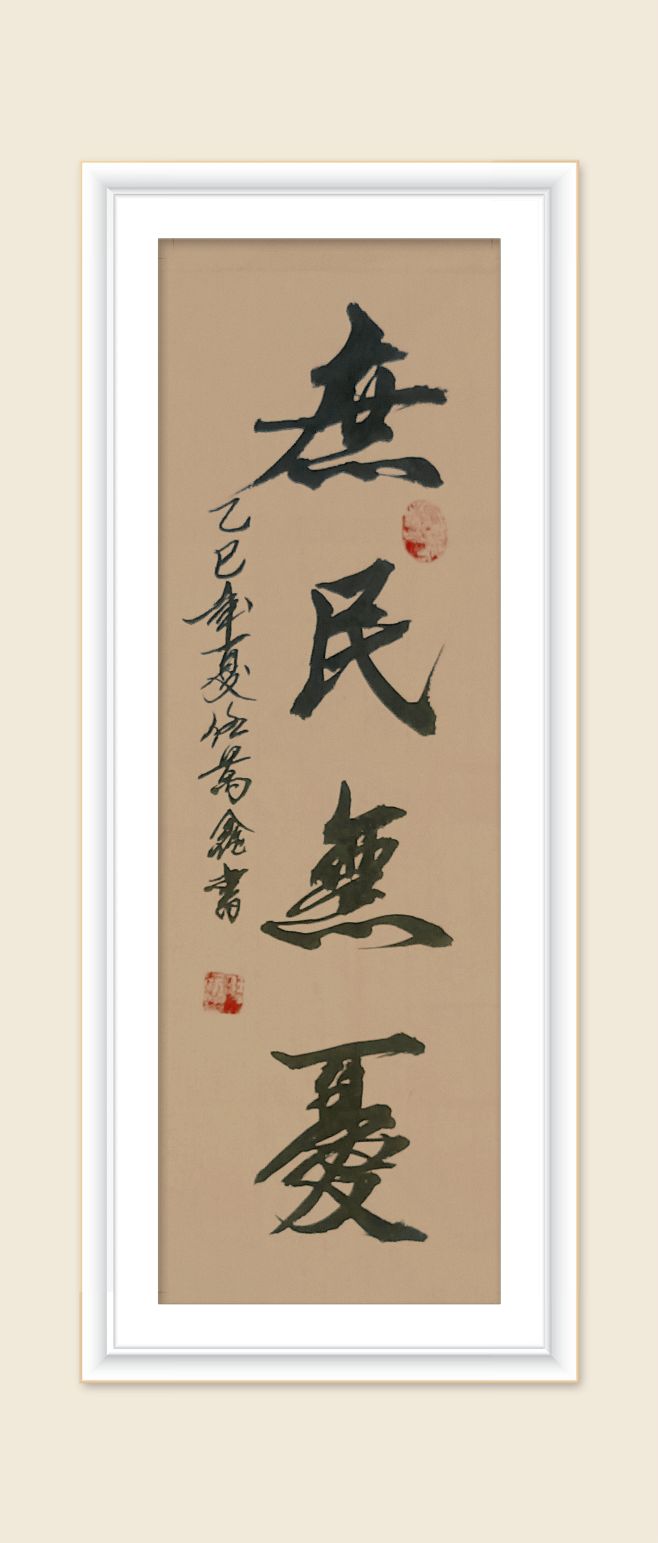 庶民無憂
乙巳年夏伍萬鑫書